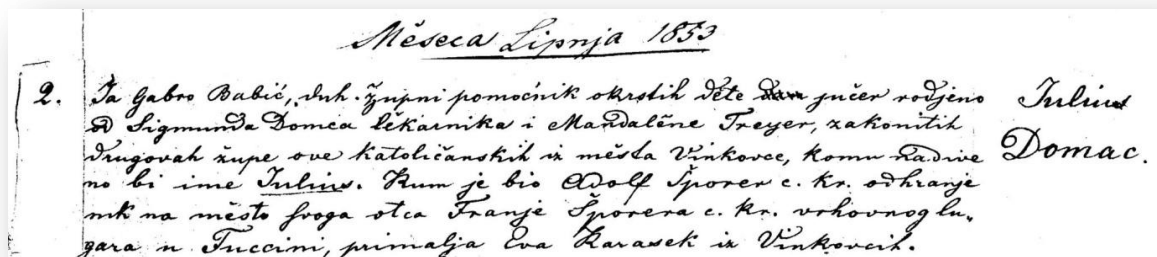 Měseca Lipnja 1853
2. Ja Gabro Babić, duh. župni pomoćnik okrstih děte jučer rodjeno
od Sigmunda Domca lěkarnika i Mandalěne Treyer, zakonitih
drugovah župe ove katoličanskih iz města Vinkovce, komu nadive
no bi ime Julius. Kum je bio Adolf Šporer c. kr. odhranje
nik na město svoga otca Franje Šporera c. kr. vrhovnog lu„
gara u Fuccini, primalja Eva Karasek iz Vinkovcih.
Julius
Domac.